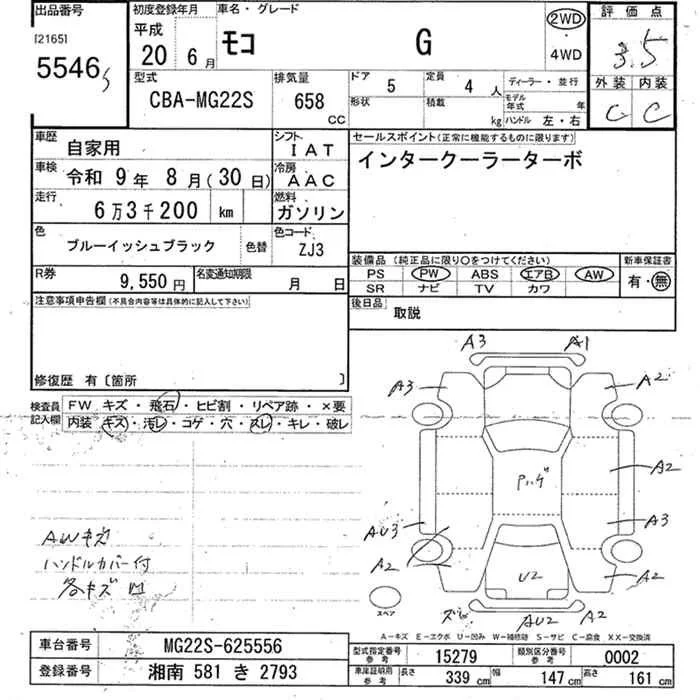 出品番号 初度登録年月 車名・グレード 2WD 評価点
[2165] 平成 モコ G ・ 3.5
5546 20 6月 4WD
型式 排気量 ドア 5 定員 4人 ディーラー・並行 外装 内装
CBA-MG22S 658 cc 形状 積載 kg モデル年式 年 C C
ハンドル 左・右
車歴 自家用 シフト IAT セールスポイント(正常に機能するものに限ります)
車検 令和 9年 8月(30日) 冷房 AAC インタークーラーターボ
走行 6万3千200 km 燃料 ガソリン
色 ブルーイッシュブラック 色替 色コード ZJ3
装備品 (純正品に限り○をつけてください) 新車保証書
R券 9,550円 名変通知期限 月 日 PS PW ABS エアB AW 有・無
SR ナビ TV カワ
注意事項申告欄(不具合内容等は具体的に記入して下さい) 後日品 取説
修復歴 有〔箇所 〕
検査員記入欄 FW キズ・飛石・ヒビ割・リペア跡・×要
内装 キズ・汚レ・コゲ・穴・スレ・キレ・破レ
A3 A1
A3 A2
A2
AU3 A3
A2 A2
U2
AU2 A2
AWキズ
ハンドルカバー付
各キズ凹
スペア
A－キズ E－エクボ U－凹み W－補修跡 S－サビ C－腐食 XX－交換済
車台番号 MG22S-625556 型式指定番号 参考 15279 類別区分番号 参考 0002
登録番号 湘南 581 き 2793 車庫証明用 参考 長さ 339cm 幅 147cm 高さ 161cm